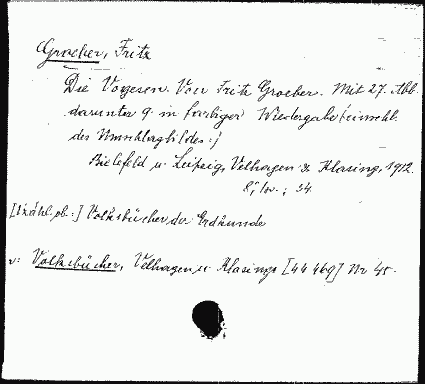 Groeber, Fritz
Die Vogesen. Von Fritz Groeber. Mit 27. Abb.
darunter 9. in farbiger Wiedergabe (einschl.
des Umschlagbildes.)
Bielefeld u. Leipzig, Velhagen & Klasing, 1912.
8°, ; 34.
Volksbücher der Erdkunde
v: Volksbücher, Velhagen u. Klasings [44 469] Nr 45.